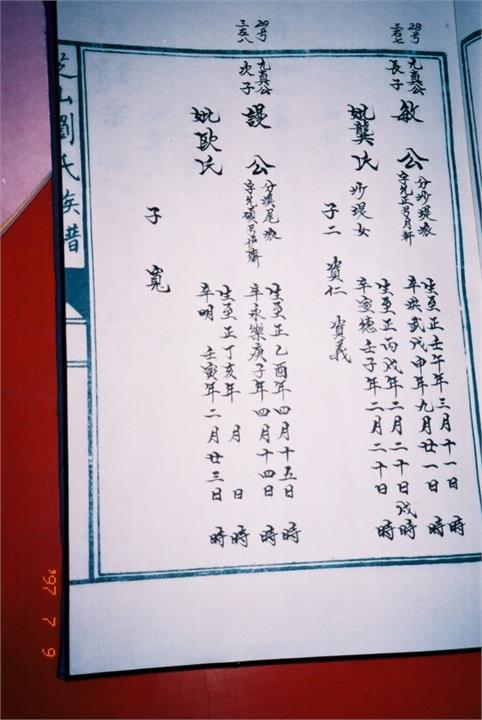 28号
三五七
九真公
長子
敏公
分沙堤派
字允正号月軒
生至正壬午年三月十一日 時
卒洪武戊申年九月廿一日 時
妣龔氏 沙堤女
生至正丙戌年二月二十日戌時
卒宣德壬子年二月二十日 時
子二 資仁 資義
29号
三五八
九真公
次子
謾公
分溪尾派
字允碩号怡齋
生至正乙酉年四月十五日 時
卒永樂庚子年四月十四日 時
妣歐氏
生至正丁亥年 月 日 時
卒明 壬寅年二月廿三日 時
子 寬
芝山劉氏族譜
'97 7 9